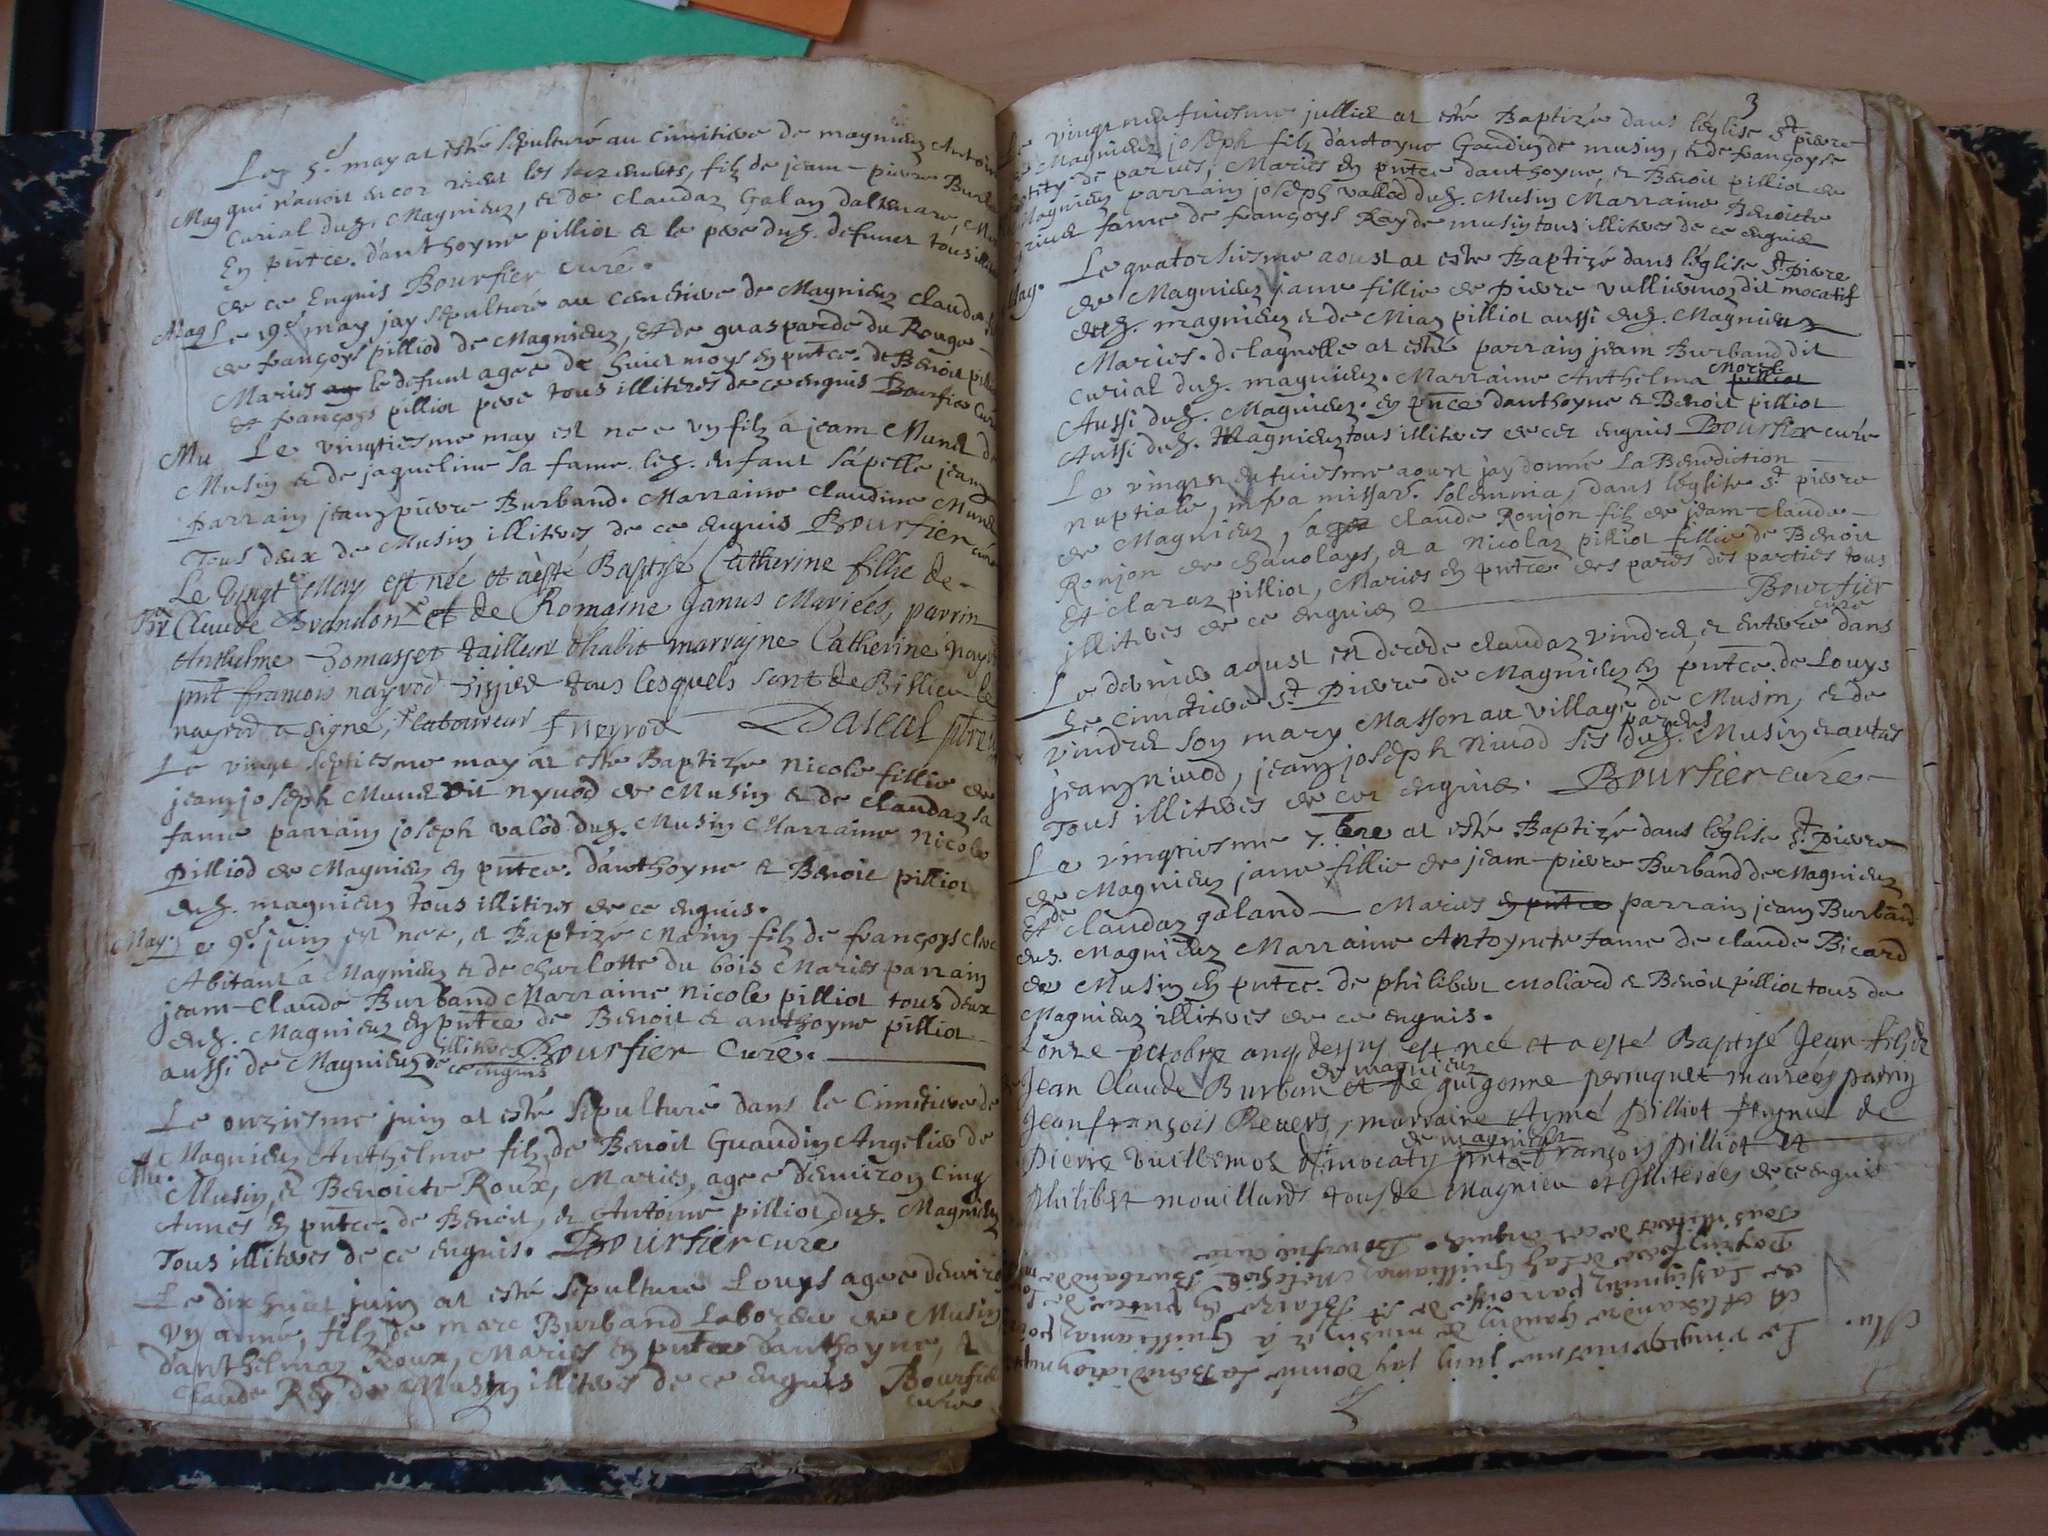 Le 5e may at esté sépulturé au cimitiere de magnieuz Antoine
Mag qui n'avoit encor receu les sacrements, filz de jeam-pierre Burband
Curial dud. Magnieuz, et de Claudaz Galan d'alteare,
En pntce. d'anthoyne pilliot et le pere dud. defunct tous
de ce Enquis Bourfier curé.
Mag Le 19e may jay sépulturé au cimitiere de Magnieuz Claudaz
de françoys pilliod de Magnieuz, et de guasparde du Rouge
Mariés le defunt agee de huict moys en pntce. de Benoit
et françoys pilliot pere tous illiteres de ce enquis Bourfier Curé
Mu Le vingtiesme may est nee vn filz a jeam Munet de
Musin et de jaqueline sa fame. led. enfant s'apelle jeam
parrain jeam pierre Burband. Marraine Claudine Munet
Tous deux de Musin illiteres de ce enquis Bourfier curé
Le vingt May est née et a esté Baptisé Catherine fillie de
Br Claude Brandon x et de Romaine Janus Mariées, parrin
Anthelme Tomasset tailleur marrajne Catherine
pnt francois nayrod tous lesquels sont de Billieu le
nayrod a signé, x laboureur f neyrod Dascal ptre
Le vingt septiesme may at esté Baptizée Nicole fillie de
jeam joseph Munet dit nyvod de Musin et de Claudaz sa
fame parrain joseph valod dud. Musin Marraine Nicole
Pilliod de Magnieuz en pntce. d'anthoyne et Benoit pilliot
dud. magnieuz tous illiteres de ce enquis.
Mag. Le 9e juin est nee, et Baptizé filz de françoys
Abitant a Magnieuz et de Charlotte du bois Mariés parrain
jeam-Claude Burband Marraine Nicole pilliot tous deux
dud. Magnieuz en pntce de Benoit et anthoyne pilliot
aussi de Magnieuz illiteres de ce enquis Bourfier Curé.
Le onziesme juin at esté sépulturé dans le Cimitiere de
Magnieuz Anthelme filz de Benoit Guaudin Angelier de
Mu. Musin, et Benoicte Roux, Mariés, agee d'environ Cinq
Annes en pntce. de Benoit, et Antoine pilliot dud. Magnieuz
Tous illiteres de ce enquis. Bourfier curé
Le dix huict juin at esté sépulturé Louys agee d'environ
vn anné, filz de marc Burband Laboreur de Musin
d'anthelmaz Roux, Mariés en pntce d'anthoyne, et
Claude Rey de Musin illiteres de ce enquis Bourfier
curé
3
Le vingt neufuiesme juillet at esté Baptizée dans l'église St. pierre
de Magnieuz joseph filz d'antoyne Gaudin de musin, et de françoyse
de parves, Mariés en pntce d'anthoyne, et Benoit pilliot de
Magnieuz parrain joseph vallod dud. Musin Marraine Benoicte
fame de françoys Rey de musin tous illiteres de ce enquis
Mag. Le quatorziesme aoust at esté Baptizé dans l'église St. pierre
de Magnieuz jame fillie de Pierre vulliermoz dit mocatif
dud. magnieuz et de Miaz pilliot aussi dud. Magnieuz
Mariés. de laquelle at esté parrain jeam Burband dit
Curial dud. magnieuz. Marraine Anthelma Morel pilliot
Aussi dud. Magnieuz. en pntce d'anthoyne et Benoit pilliot
Aussi dud. Magnieuz tous illiteres de cet enquis Bourfier curé
Le vingt neufuiesme aoust jay donné La Benediction
nuptiale, infra missarum solemnia, dans l'église St. pierre
de Magnieuz, a Claude Ronjon filz de jeam-Claude
Ronjon de Chavolays, et a Nicolaz pilliot fillie de Benoit
Et Claraz pilliot, Mariés en pntce des parés des parties tous
illiteres de ce enquis Bourfier curé
Le dernier aoust est decede Claudaz vindret, et enterré dans
Le Cimitiere St. Pierre de Magnieuz en pntce. de Louys
vindret son mary Masson au village de Musin, et de
jeam nivod, jeam joseph nivod ses parens dud. Musin et autres
Tous illiteres de cet enquis. Bourfier curé
Le vingtiesme 7.bre at esté Baptizée dans l'église St. Pierre
de Magnieuz jame fillie de jeam-pierre Burband de Magnieuz
Et de Claudaz galand Mariés en pntce parrain jeam Burband
dud. Magnieuz Marraine Antoynete fame de Claude Bicard
de Musin en pntce. de philibert Moliard et Benoit pilliot tous de
Magnieuz illiteres de ce enquis.
L'onze octobre anq dessus est né et a esté Baptisé Jean filz de
Jean Claude Burban de magnieuz et de guigonne perruquet mariéz parrin
Jean françois Revers, marraine Aymé pilliot femme de
Pierre Vuillemoz de magnieu pnte françois pilliot et
Philibert mouillard tous de Magnieu et Illiterez de ce enquis
Mu. Le vingtquatriesme juin jay donné La Benediction
A Alexandre Gaudin de musin et a Guilliamaz
de Lassignieu parroisse de St. Blaise en pntce de
Guilliamaz Michel Burband
Tous illiteres de cet enquis. Bourfier curé